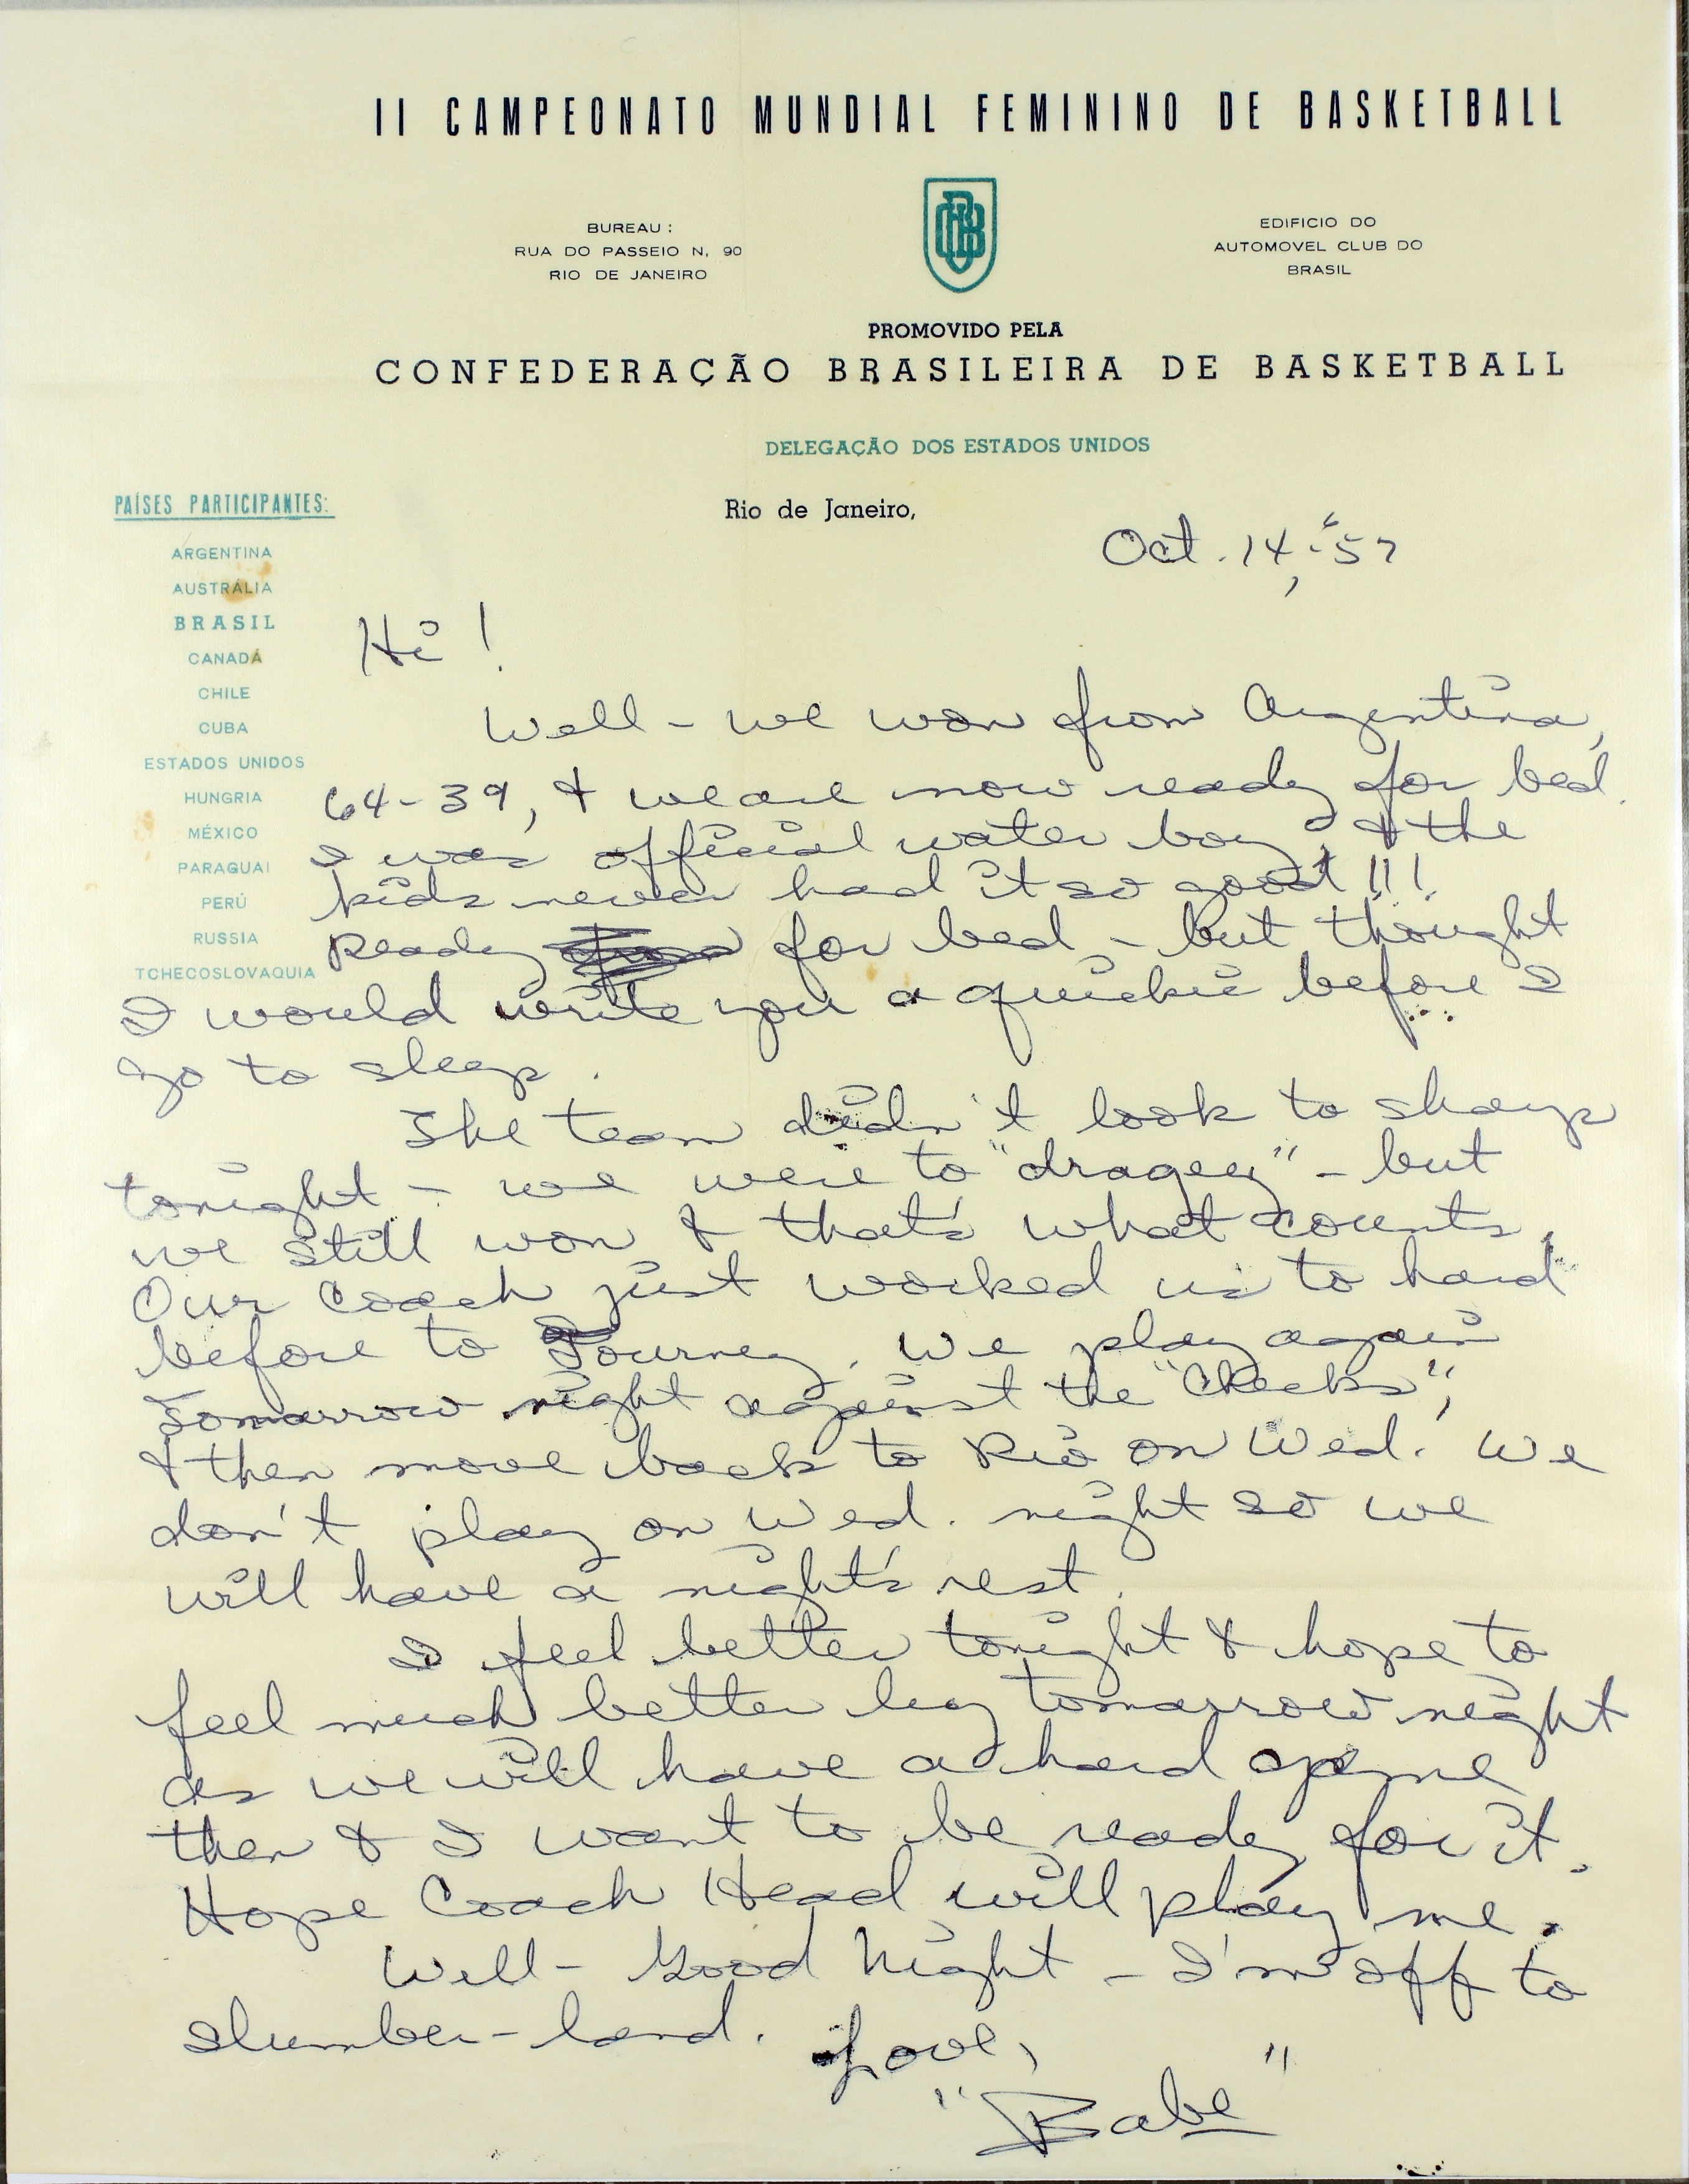 II CAMPEONATO MUNDIAL FEMININO DE BASKETBALL
BUREAU :
RUA DO PASSEIO N. 90
RIO DE JANEIRO
CBB
EDIFICIO DO
AUTOMOVEL CLUB DO
BRASIL
PROMOVIDO PELA
CONFEDERAÇÃO BRASILEIRA DE BASKETBALL
DELEGAÇÃO DOS ESTADOS UNIDOS
PAÍSES PARTICIPANTES:
ARGENTINA
AUSTRÁLIA
BRASIL
CANADÁ
CHILE
CUBA
ESTADOS UNIDOS
HUNGRIA
MÉXICO
PARAGUAI
PERÚ
RUSSIA
TCHECOSLOVAQUIA
Rio de Janeiro,
Oct. 14, '57
Hi!
Well - we won from Argentina,
64-39, & we are now ready for bed.
I was official water boy, & the
kids never had it so good!!!
Ready for bed - but thought
I would write you a quickie before I
go to sleep.
The team didn't look to sharp
tonight - we were to "dragey" - but
we still won & that's what counts.
Our Coach just worked us to hard
before to Tourney. We play again
Tomarrow night against the "Checks",
& then move back to Rio on Wed. We
don't play on Wed. night so we
will have a night's rest.
I feel better tonight & hope to
feel much better by tomarrow night
as we will have a hard game
then & I want to be ready for it.
Hope Coach Head will play me.
Well - Good Night - I'm off to
slumber-land.
Love,
"Babe"